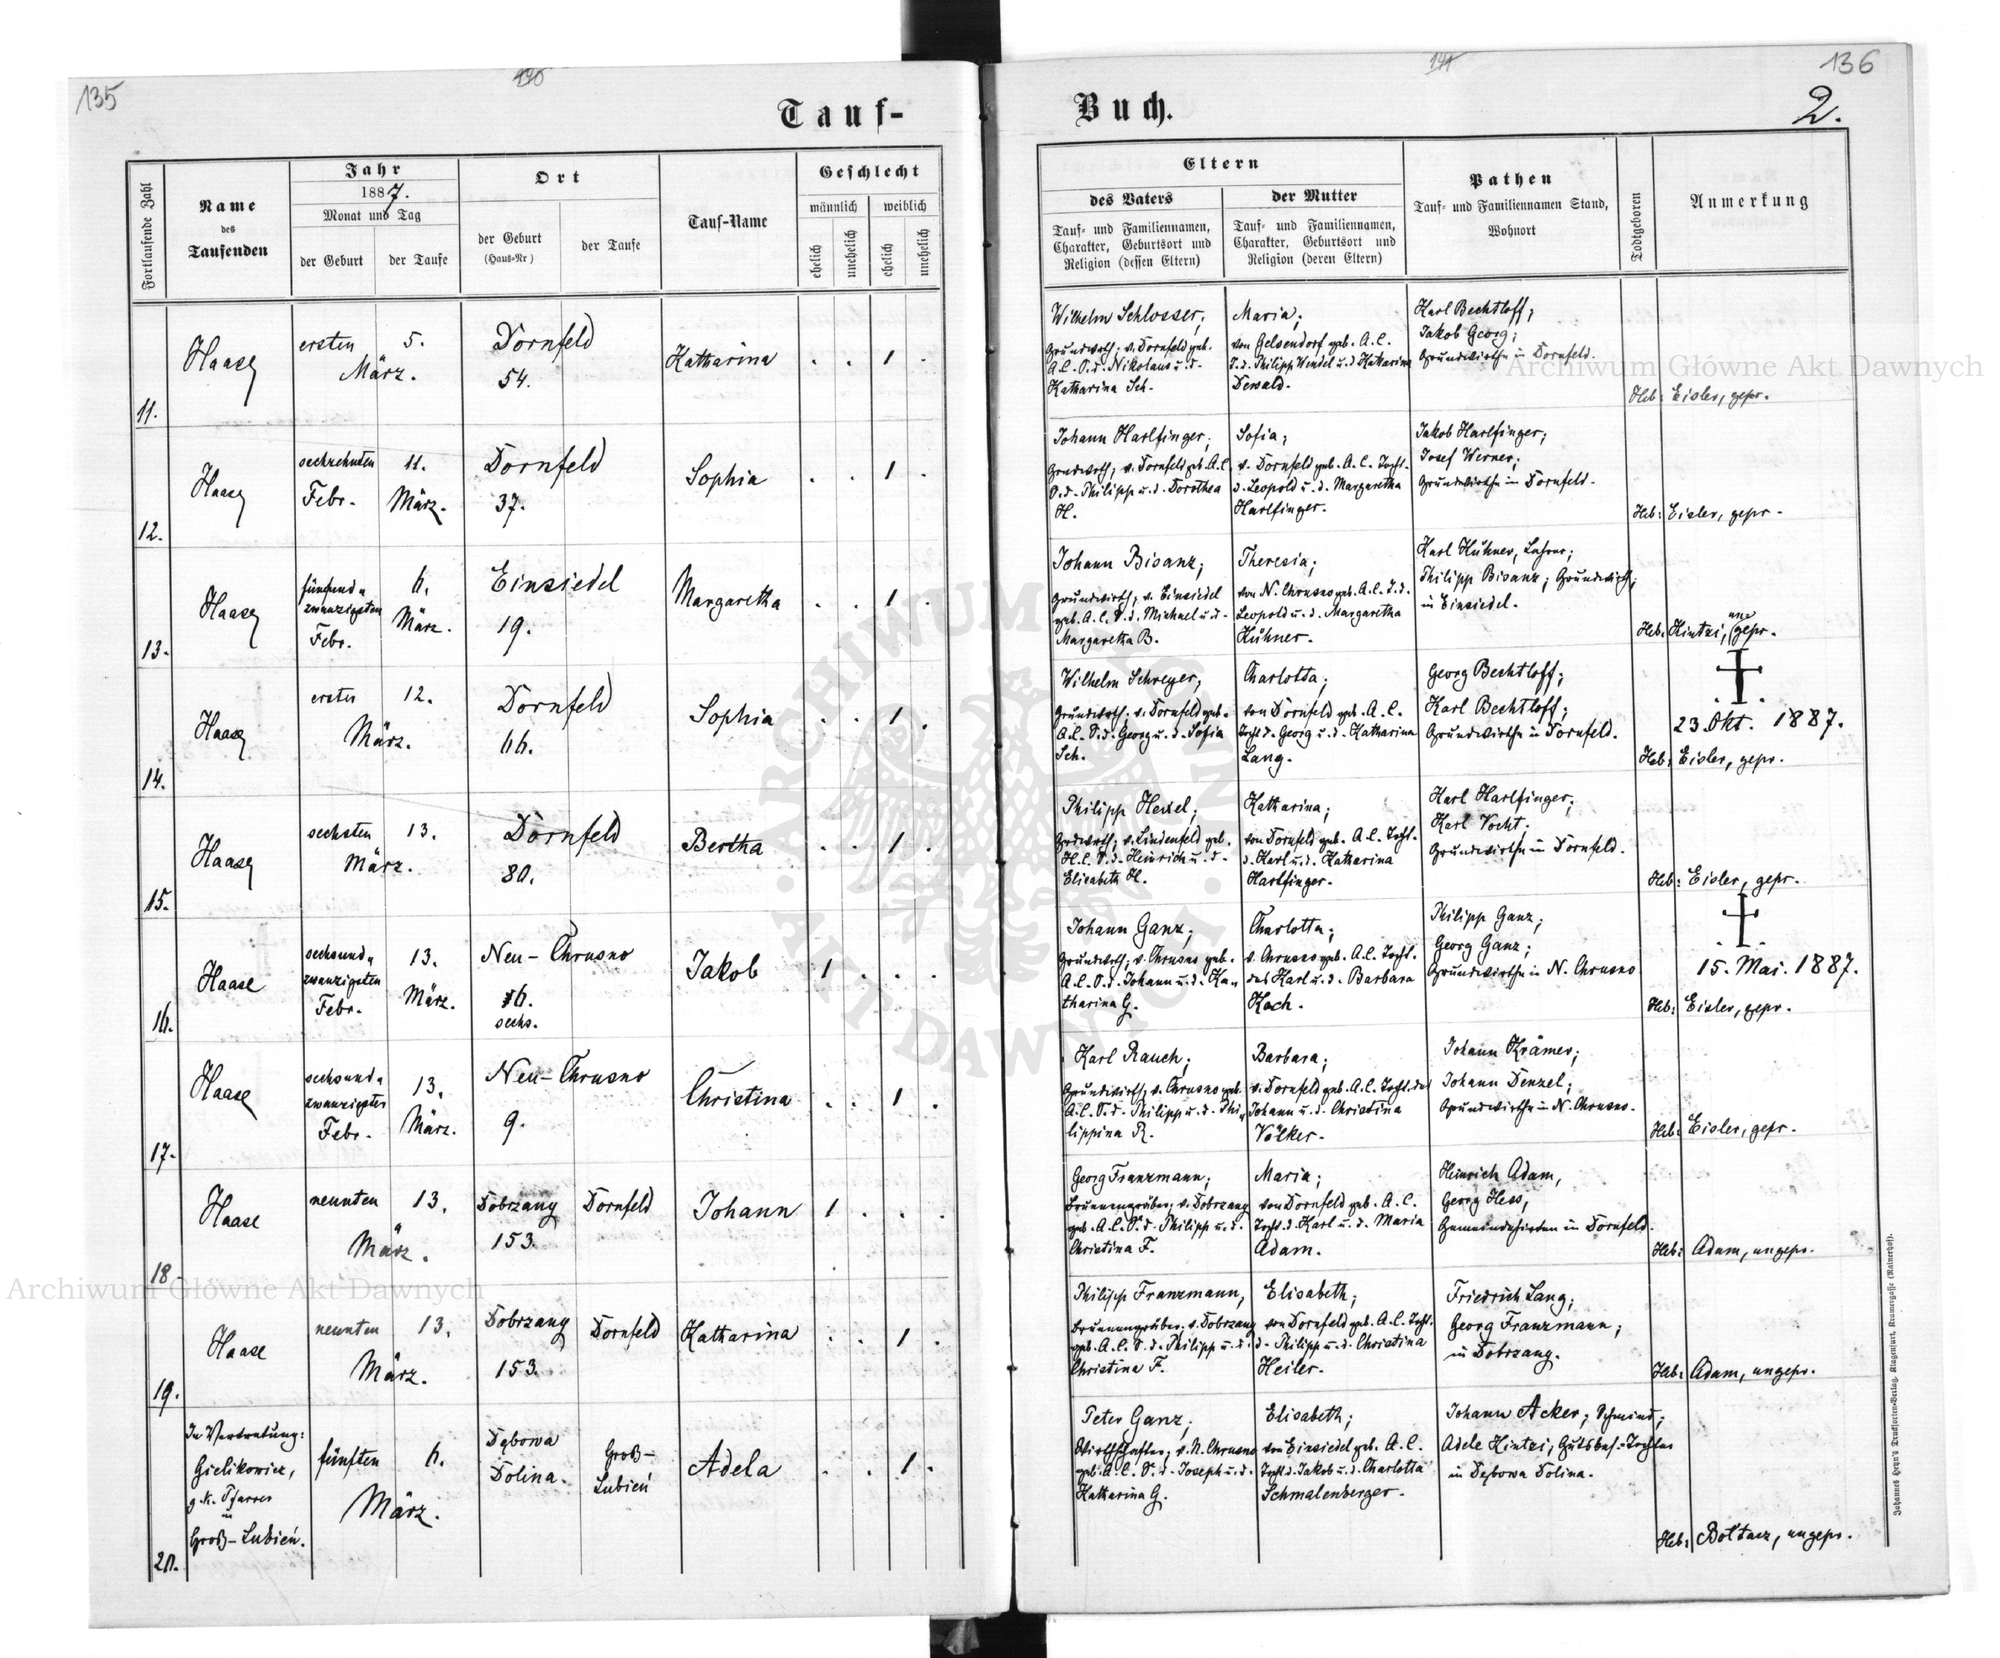 135
136
2.
Tauf-
Buch.
Fortlaufende Zahl
Name
des
Taufenden
Jahr
1887.
Monat und Tag
der Geburt
der Taufe
Ort
der Geburt
(Haus-Nr)
der Taufe
Tauf-Name
Geschlecht
männlich
weiblich
ehelich
unehelich
ehelich
unehelich
Eltern
des Vaters
der Mutter
Tauf- und Familiennamen,
Charakter, Geburtsort und
Religion (dessen Eltern)
Tauf- und Familiennamen,
Charakter, Geburtsort und
Religion (deren Eltern)
Pathen
Tauf- und Familiennamen Stand,
Wohnort
Todtgeboren
Anmerkung
11.
Haase
ersten
5.
März.
Dornfeld
54.
Katharina
. . 1 .
Wilhelm Schlosser;
Grundwirth; v. Dornfeld geb.
A.C. S.d. Nikolaus u. d.
Katharina Sch.
Maria;
von Gelsendorf geb. A.C.
T.d. Philipp Wendel u.d. Katharina
Dewald.
Karl Bechtloff;
Jakob Georg;
Grundwirthe in Dornfeld.
Heb: Eisler, gepr.
12.
Haase
sechzehnten
Febr.
11.
März.
Dornfeld
37.
Sophia
. . 1 .
Johann Harlfinger;
Grndwrth; v. Dornfeld geb. A.C.
S.d. Philipp u.d. Dorothea
H.
Sofia;
v. Dornfeld geb. A.C. Tocht.
d. Leopold u. d. Margaretha
Harlfinger.
Jakob Harlfinger;
Josef Werner;
Grundwirthe in Dornfeld.
Heb: Eisler, gepr.
13.
Haase
fünfund-
zwanzigsten
Febr.
6.
März.
Einsiedel
19.
Margaretha
. . 1 .
Johann Bisanz;
Grundwirth; v. Einsiedel
geb. A.C. S.d. Michael u.d.
Margaretha B.
Theresia;
von N. Chrusno geb. A.C. T.d.
Leopold u. d. Margaretha
Kühner.
Karl Kühner, Lehrer;
Philipp Bisanz; Grundwirth;
in Einsiedel.
Heb: Hintzi, ungepr.
14.
Haase
ersten
12.
März.
Dornfeld
66.
Sophia
. . 1 .
Wilhelm Schreyer;
Grundwrth; v. Dornfeld geb.
A.C. S.d. Georg u. d. Sofia
Sch.
Charlotta;
von Dornfeld geb. A.C.
Tocht d. Georg u. d. Katharina
Lang.
Georg Bechtloff;
Karl Bechtloff;
Grundwirthe in Dornfeld.
23. Okt. 1887.
Heb: Eisler, gepr.
15.
Haase
sechsten
13.
März.
Dornfeld
80.
Bertha
. . 1 .
Philipp Hexel;
Grndwrth; v. Lindenfeld geb.
H.C. S.d. Heinrich u. d.
Elisabeth H.
Katharina;
von Dornfeld geb. A.C. Tocht.
d. Karl u. d. Katharina
Harlfinger.
Karl Harlfinger;
Karl Vocht;
Grundwirthe in Dornfeld.
Heb: Eisler, gepr.
16.
Haase
sechsund-
zwanzigsten
Febr.
13.
März.
Neu-Chrusno
6.
sechs.
Jakob
1 . . .
Johann Ganz;
Grundwrth; v. Chrusno geb.
A.C. S.d. Johann u. d. Ka-
tharina G.
Charlotta;
v. Chrusno geb. A.C. Tocht.
des Karl u. d. Barbara
Koch.
Philipp Ganz;
Georg Ganz;
Grundwirthe in N. Chrusno
15. Mai. 1887.
Heb: Eisler, gepr.
17.
Haase
sechsund-
zwanzigsten
Febr.
13.
März.
Neu-Chrusno
9.
Christina
. . 1 .
Karl Rauch;
Grundwirth; v. Chrusno geb.
A.C. S.d. Philipp u. d. Phi-
lippina R.
Barbara;
v. Dornfeld geb. A.C. Tocht. des
Johann u. d. Christina
Völker.
Johann Krämer;
Johann Denzel;
Grundwirthe in N. Chrusno.
Heb: Eisler, gepr.
18
Haase
neunten
13.
März.
Dobrzany
153.
Dornfeld
Johann
1 . . .
Georg Franzmann;
Brunnengräber; v. Dobrzany
geb. A.C. S.d. Philipp u. d.
Christina F.
Maria;
von Dornfeld geb. A.C.
Tocht. d. Karl u. d. Maria
Adam.
Heinrich Adam,
Georg Hess,
Gemeindehirten in Dornfeld.
Heb: Adam, ungepr.
19.
Haase
neunten
13.
März.
Dobrzany
153.
Dornfeld
Katharina
. . 1 .
Philipp Franzmann,
Brunnengräber; v. Dobrzany
geb. A.C. S.d. Philipp u. d.
Christina F.
Elisabeth;
von Dornfeld geb. A.C. Tocht.
d. Philipp u. d. Christina
Heiler.
Friedrich Lang;
Georg Franzmann;
in Dobrzany.
Heb: Adam, ungepr.
20.
In Vertretung:
Gielikowicz,
g.k. Pfarrer
in
Groß-Lubień.
fünften
6.
März.
Dębowa
Dolina.
Groß-
Lubień
Adela
. . 1 .
Peter Ganz;
v. N. Chrusno
geb. A.C. S.d. Joseph u. d.
Katharina G.
Elisabeth;
von Einsiedel geb. A.C.
Tocht d. Jakob u. d. Charlotta
Schmalenberger.
Johann Acker; Schmied;
Adele Hintzi, Gutsbes.-Tochter
in Dębowa Dolina.
Heb: ungepr.
Johannes Heyn's Drucksorten-Verlag, Klagenfurt, Kramergasse (Rainerhof).
Archiwum Główne Akt Dawnych
Archiwum Główne Akt Dawnych